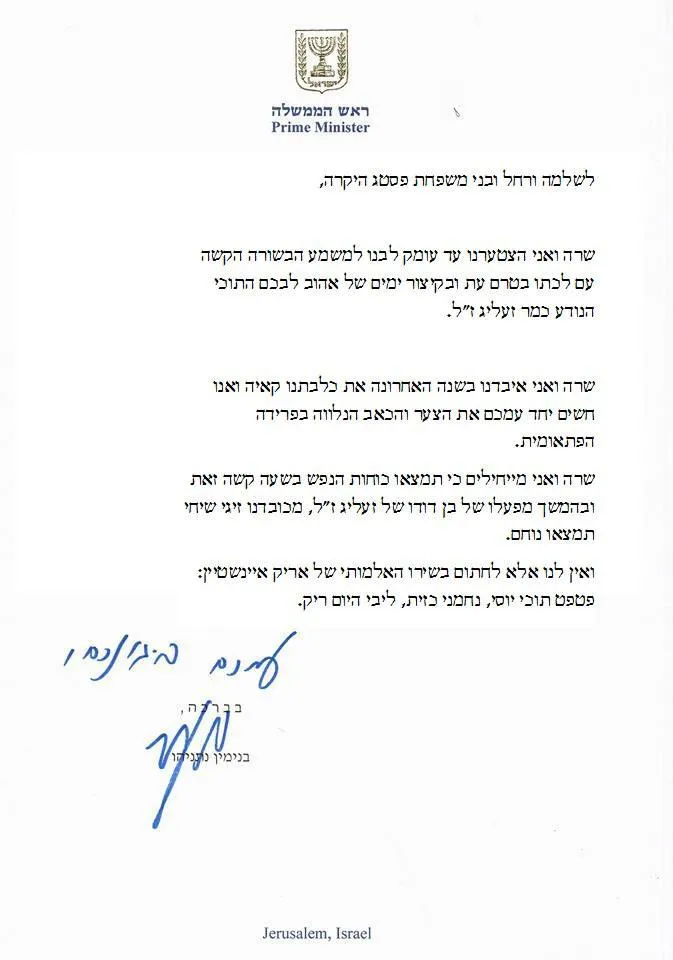 ישראל
ראש הממשלה
Prime Minister
לשלמה ורחל ובני משפחת פסטג היקרה,
שרה ואני הצטערנו עד עומק לבנו למשמע הבשורה הקשה
עם לכתו בטרם עת ובקיצור ימים של אהוב לבכם התוכי
הנודע כמר זעליג ז״ל.
שרה ואני איבדנו בשנה האחרונה את כלבתנו קאיה ואנו
חשים יחד עמכם את הצער והכאב הנלווה בפרידה
הפתאומית.
שרה ואני מייחילים כי תמצאו כוחות הנפש בשעה קשה זאת
ובהמשך מפעלו של בן דודו של זעליג ז״ל, מכובדנו זיגי שיחי
תמצאו נוחם.
ואין לנו אלא לחתום בשירו האלמותי של אריק איינשטיין:
פטפט תוכי יוסי, נחמני כזית, ליבי היום ריק.
עמכם ביגונכם ו
בברכה,
בנימין נתניהו
Jerusalem, Israel